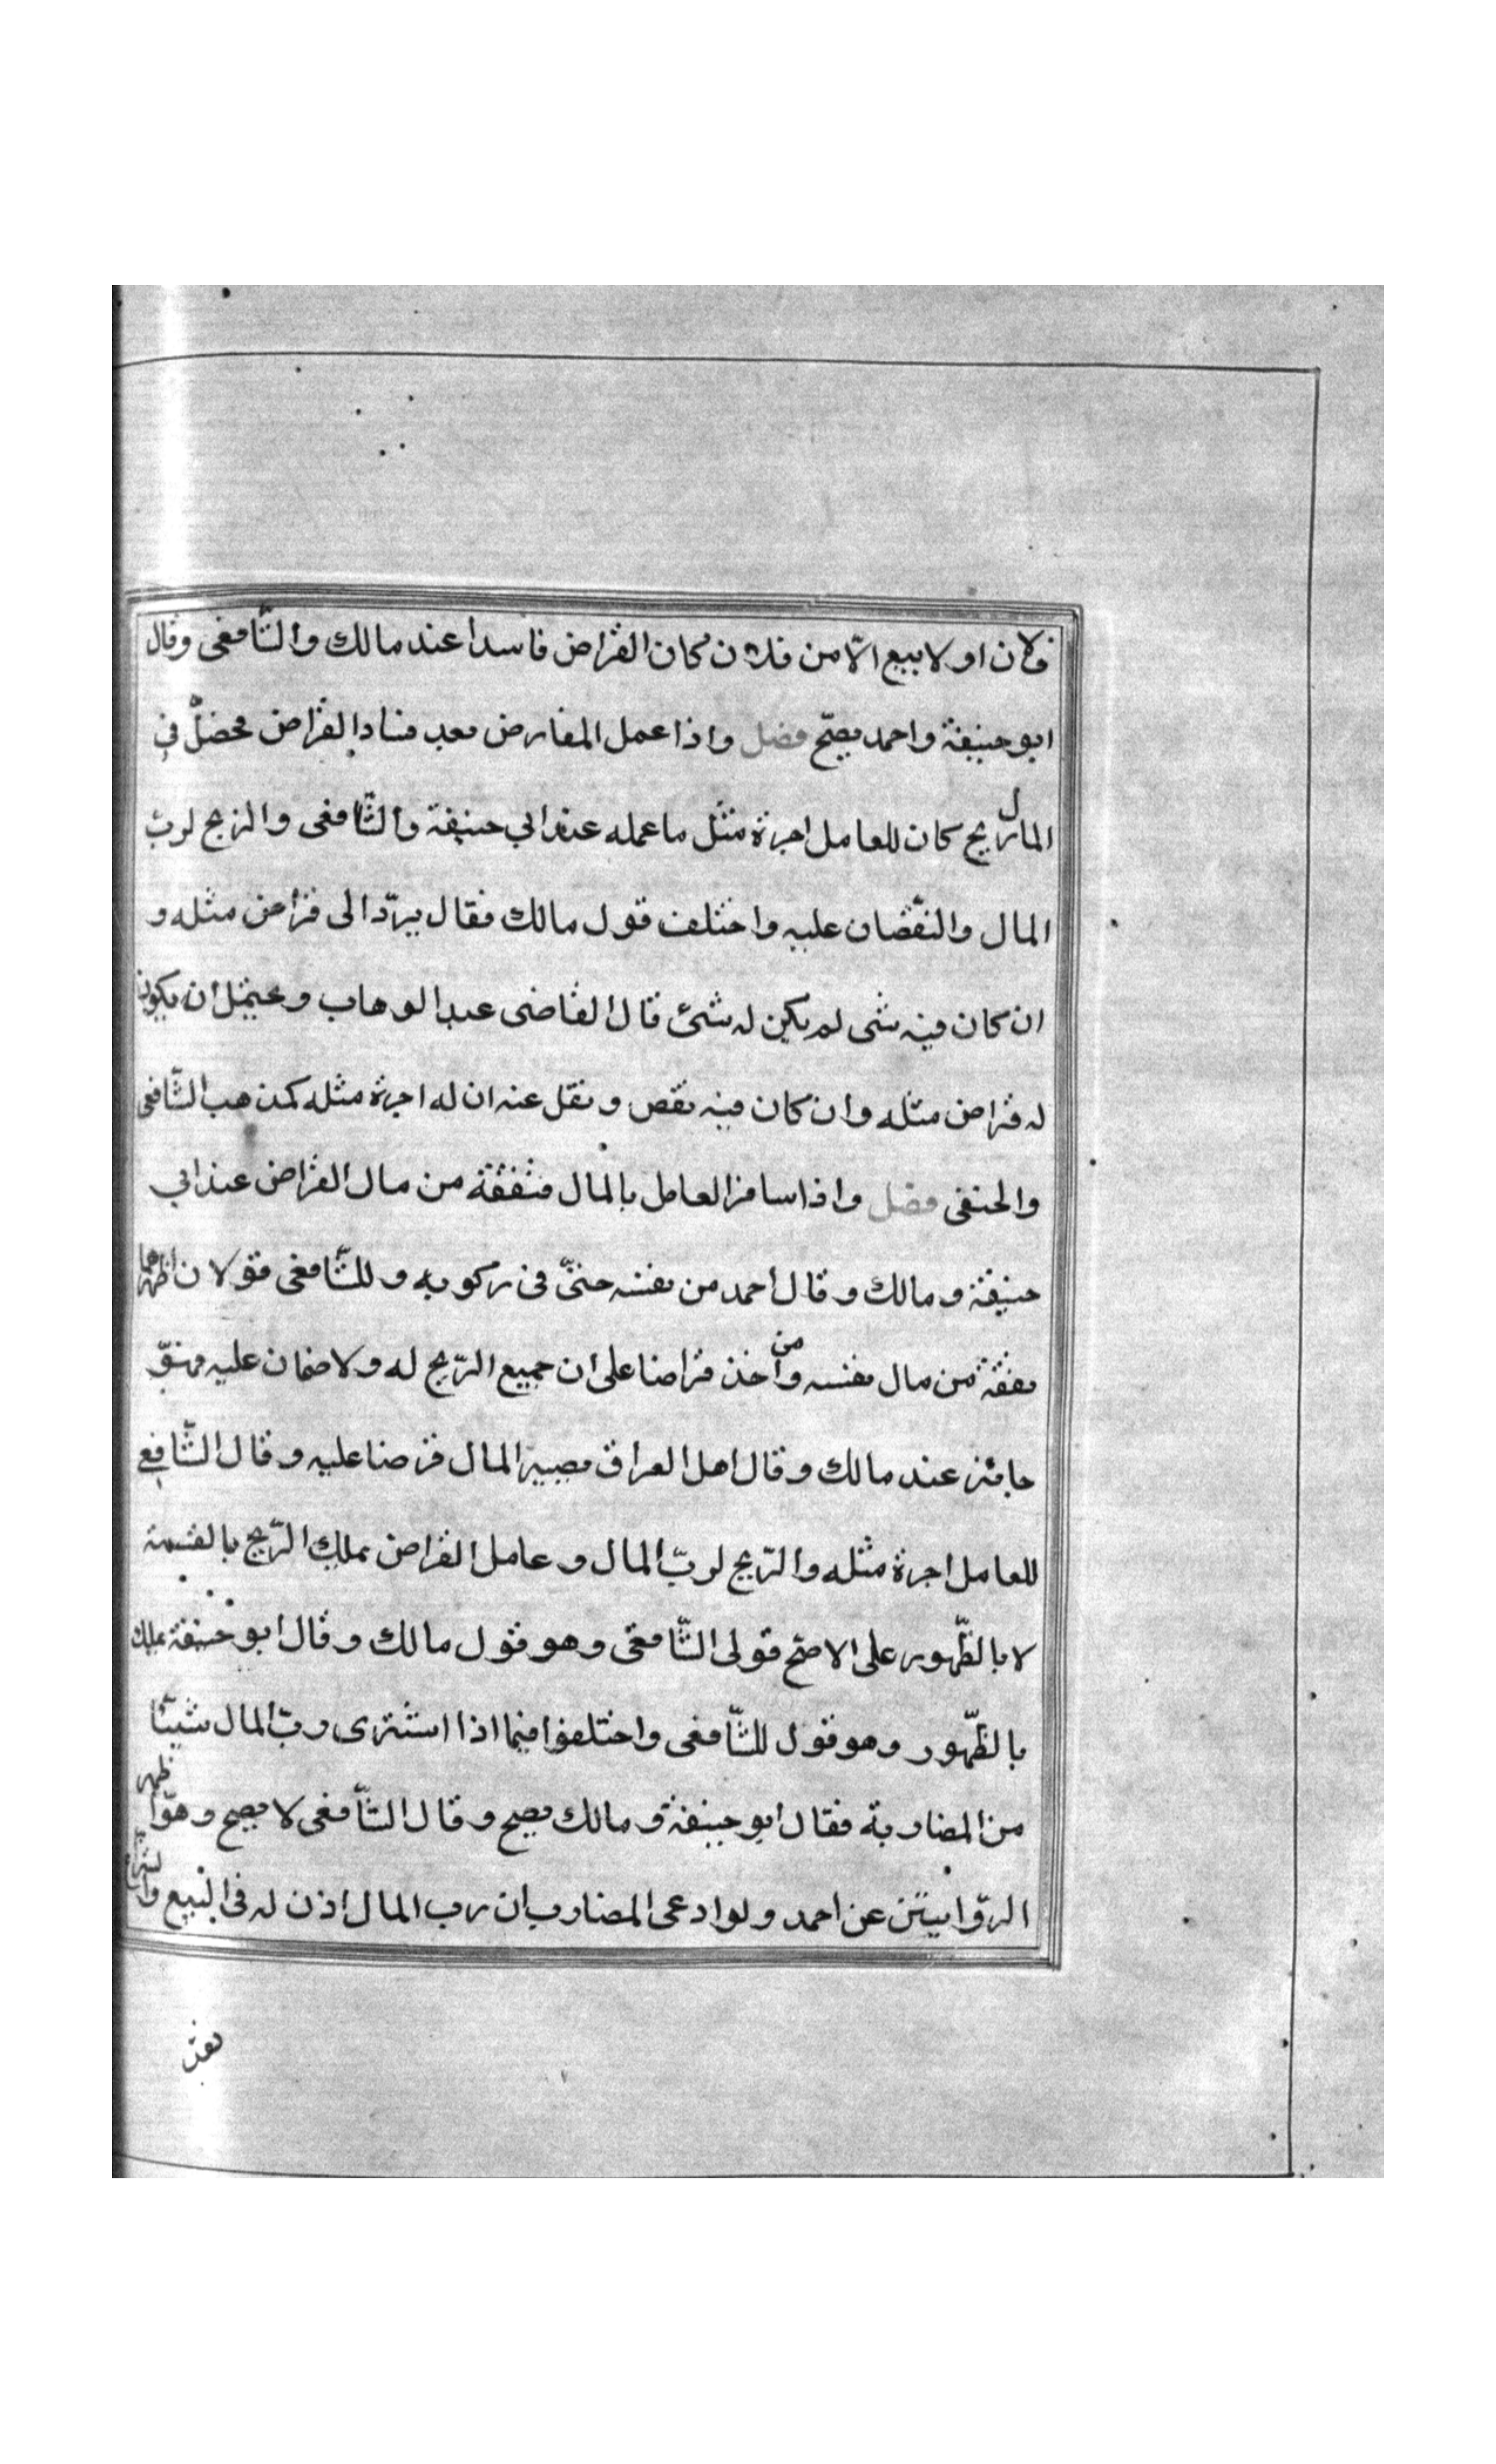 فلان او لا يبيع الّا من فلان كان القراض فاسدا عند مالك والشّافعى وقال
ابو حنيفة واحمد يصحّ فصل واذا عمل المقارض بعد فساد القراض فحصل في
المال ربح كان للعامل اجرة مثل ما عمله عند ابي حنيفة والشّافعى والربح لربّ
المال والنقصان عليه واختلف قول مالك فقال يردّ الى قراض مثله و
ان كان فيه شى لم يكن له شئ قال القاضى عبد الوهاب ويحتمل ان يكون
له قراض مثله وان كان فيه نقص ونقل عنه ان له اجرة مثله كمذهب الشّافعى
والحنفى فصل واذا سافر العامل بالمال فنفقة من مال القراض عند ابي
حنيفة ومالك وقال احمد من نفسه حتّى فى ركوبه وللشّافعى قولان اظهرهما
نفقة من مال نفسه ومن اخذ قراضا على ان جميع الرّبح له ولا ضمان عليه فهوّ
جائز عند مالك وقال اهل العراق يصير المال قرضا عليه وقال الشّافعي
للعامل اجرة مثله والرّبح لربّ المال وعامل القراض يملك الرّبح بالقسمة
لا بالظّهور على الاصحّ قولى الشّافعى وهو قول مالك وقال ابو حنيفة يملك
بالظّهور وهو قول للشّافعى واختلفوا فيما اذا اشترى ربّ المال شيئا
من المضاربة فقال ابو حنيفة ومالك يصح وقال الشّافعى لا يصح وهو اظهر
الرّوايتين عن احمد ولو ادعى المضارب ان رب المال اذن له فى البيع والشراء
نقدا